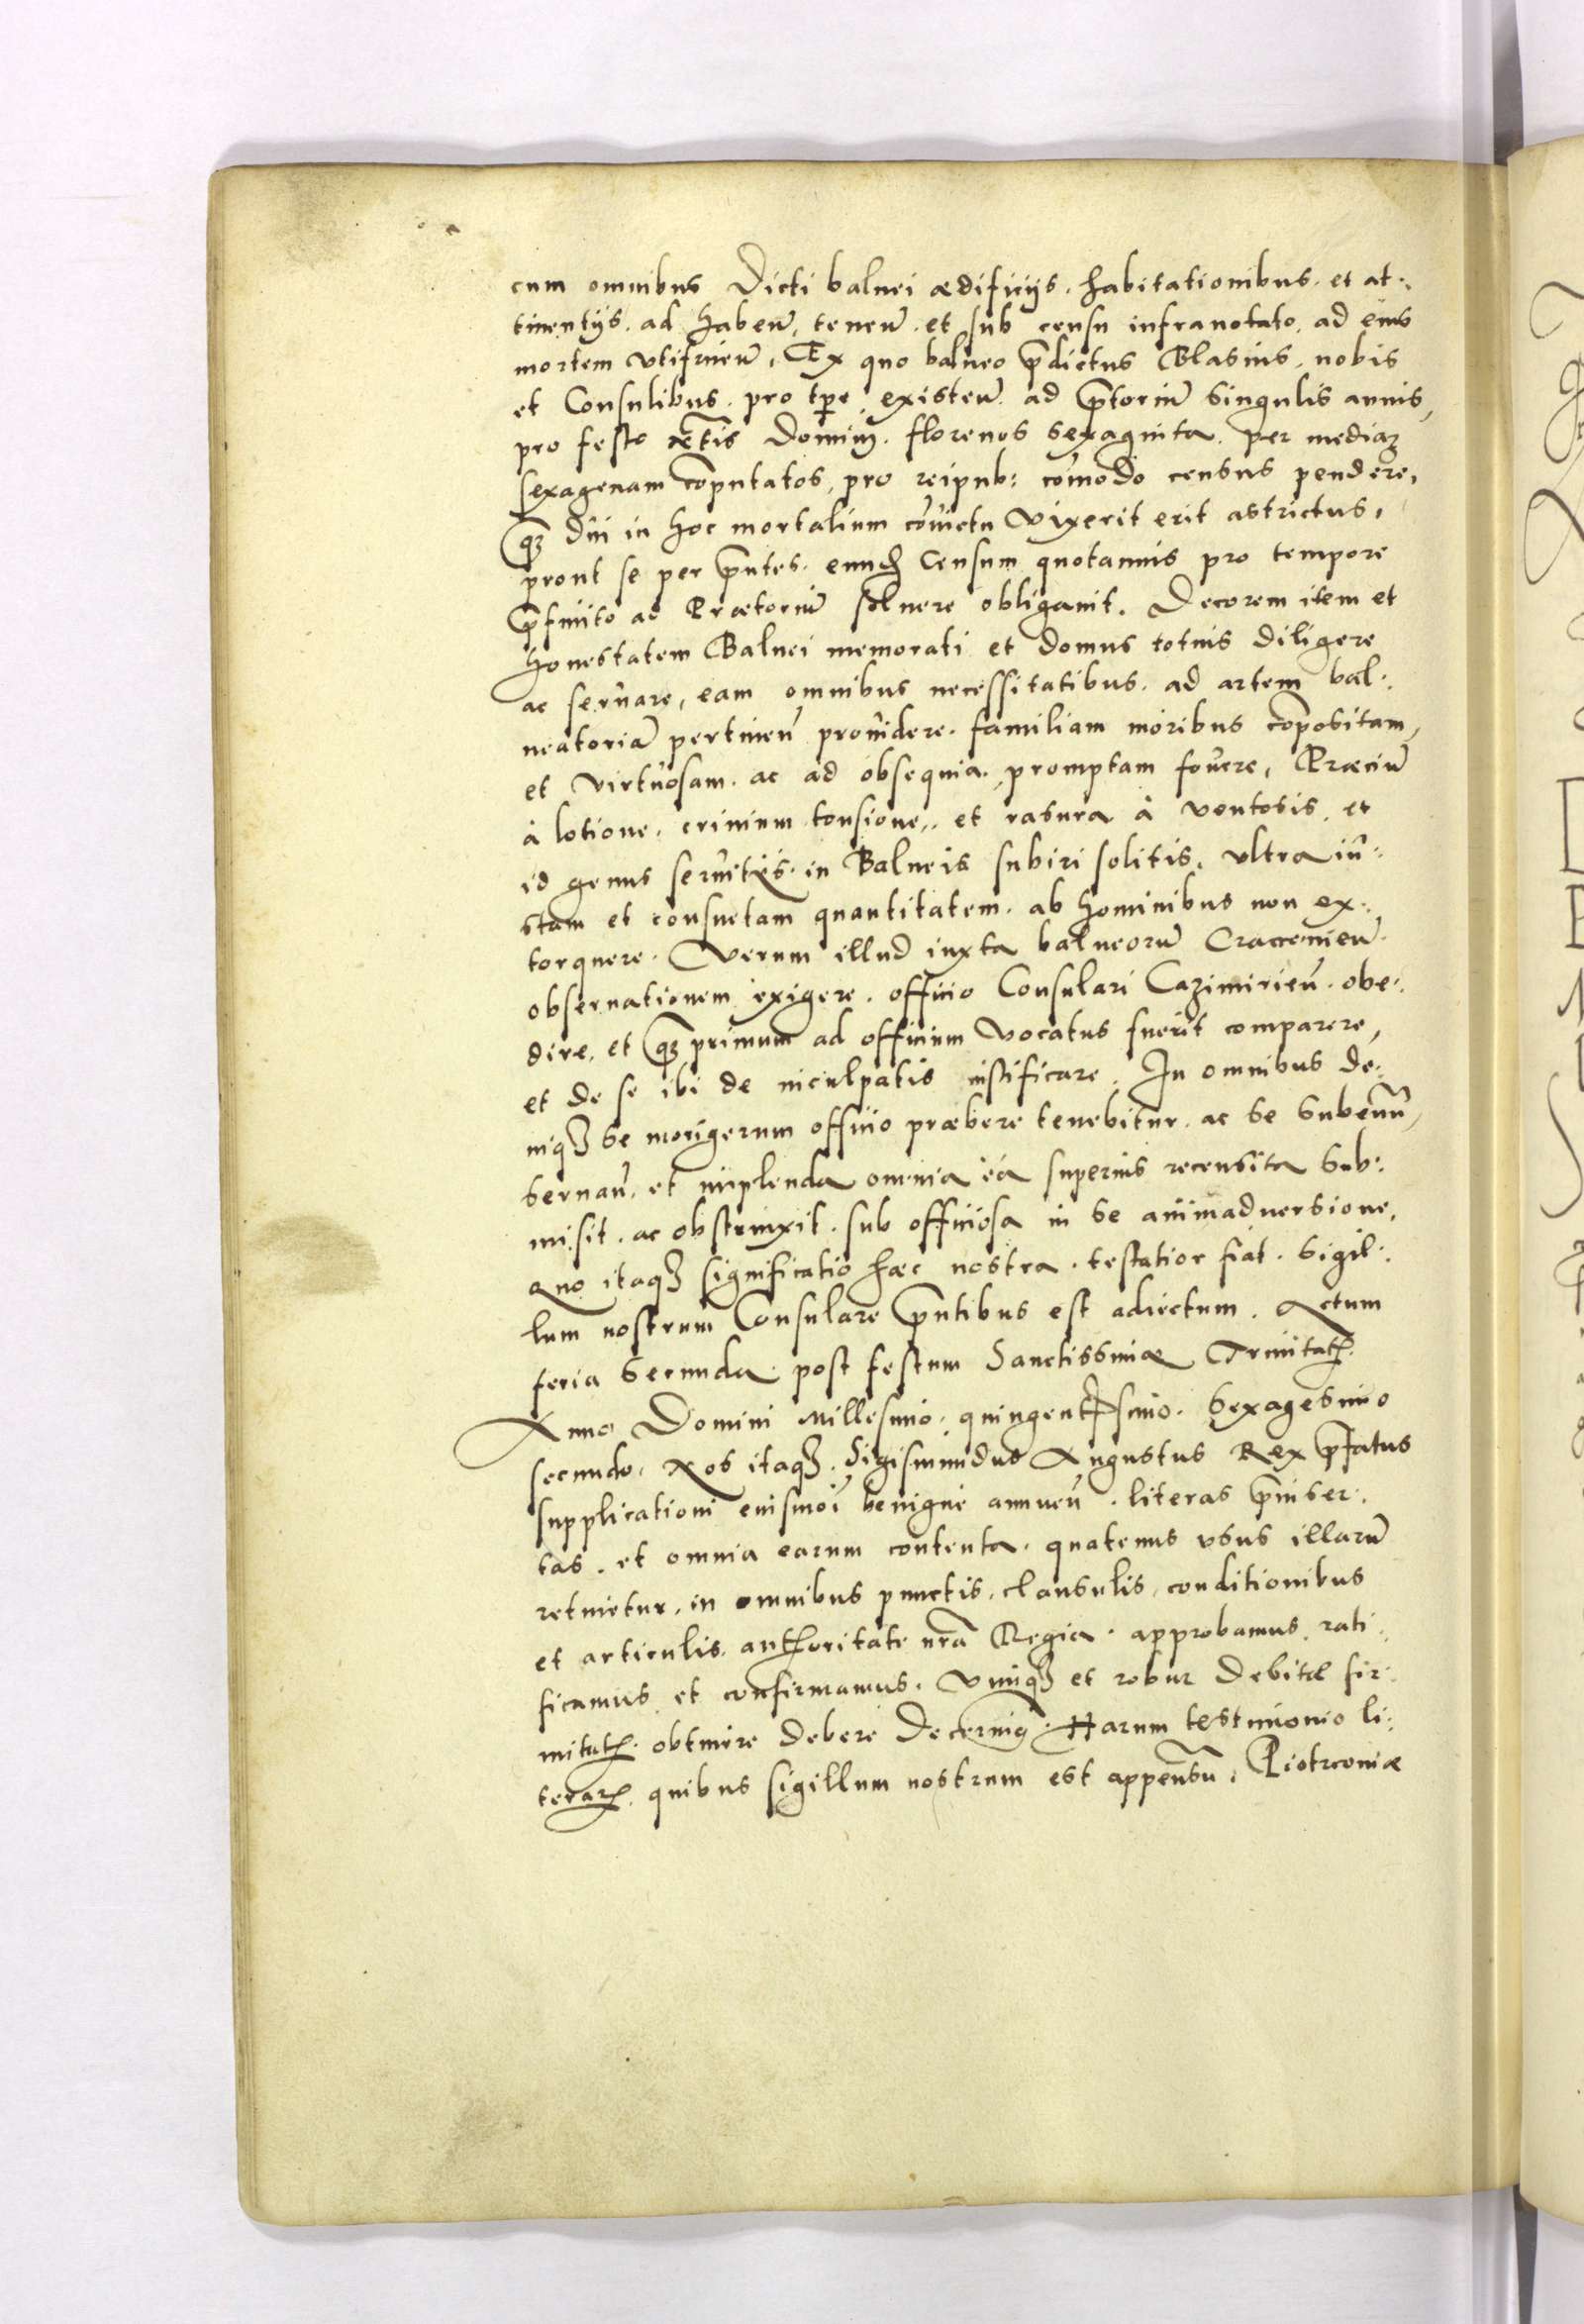 cum omnibus Dicti balnei ædificijs. habitationibus. et at:
tinentijs. ad habeñ, teneñ. et sub censu infranotato. ad eius
mortem vtifrueñ. Ex quo balneo p̃dictus Blasius. nobis
et Consulibus. pro tp̃e existeñ. ad p̃toriũ singulis annis,
pro festo Domini. florenos sexaginta. per mediaȝ
sexagenam cõputatos, pro reipub: cõmodo census pendere,
qȝ diu in hoc mortalium cõuictu vixerit erit astrictus,
prout se per p̃ntes. eund̃ Censum quotannis pro tempore
p̃finito ad Prætoriũ soluere obligauit. Decorem item et
honestatem Balnei memorati et domus totius diligere
ac seruare, eam omnibus necessitatibus. ad artem bal:
neatoriã pertineñ prouidere. familiam moribus cõpositam,
et virtuosam. ac ad obsequia. promptam fouere, Præciũ
à lotione. crinium tonsione,. et rasura à ventosis. et
id genus seruitijs. in Balneis subiri solitis. vltra iu:
stam et consuetam quantitatem. ab hominibus non ex:
torquere. Verum illud iuxta balneorũ Cracouieñ.
obseruationem exigere. officio Consulari Cazimirieñ. obe:
dire, et qȝ primum ad officium vocatus fuerit comparere,
et de se ibi de inculpatis iustificare. In omnibus de:
niqȝ se morigerum officio præbere tenebitur. ac se
seruañ. et implenda omnia ea superius recensita sub:
misit. ac obstrinxit. sub officiosa in se animaduersione.
Quo itaqȝ significatio hæc nostra. testatior fiat. Sigil:
lum nostrum Consulare p̃ntibus est adiectum. Actum
feria secunda. post festum Sanctissimæ Trinitatꝭ.
Anno Domini Millesimo. quingentesimo. sexagesimo
secundo. Nos itaqȝ. Sigismundus Augustus Rex p̃fatus
supplicationi euismoi benigne annueñ. literas p̃inser:
tas. et omnia earum contenta. quatenus vsus illarũ
retinetur. in omnibus punctis. clausulis. conditionibus
et articulis. authoritate nr̃a Regia. approbamus. rati:
ficamus et confirmamus. Vimqȝ et robur debitæ fir:
mitatꝭ. obtinere debere decernimꝰ. Harum testimonio li:
terarꝝ. quibus sigillum nostrum est appensũ. Piotrcouiæ